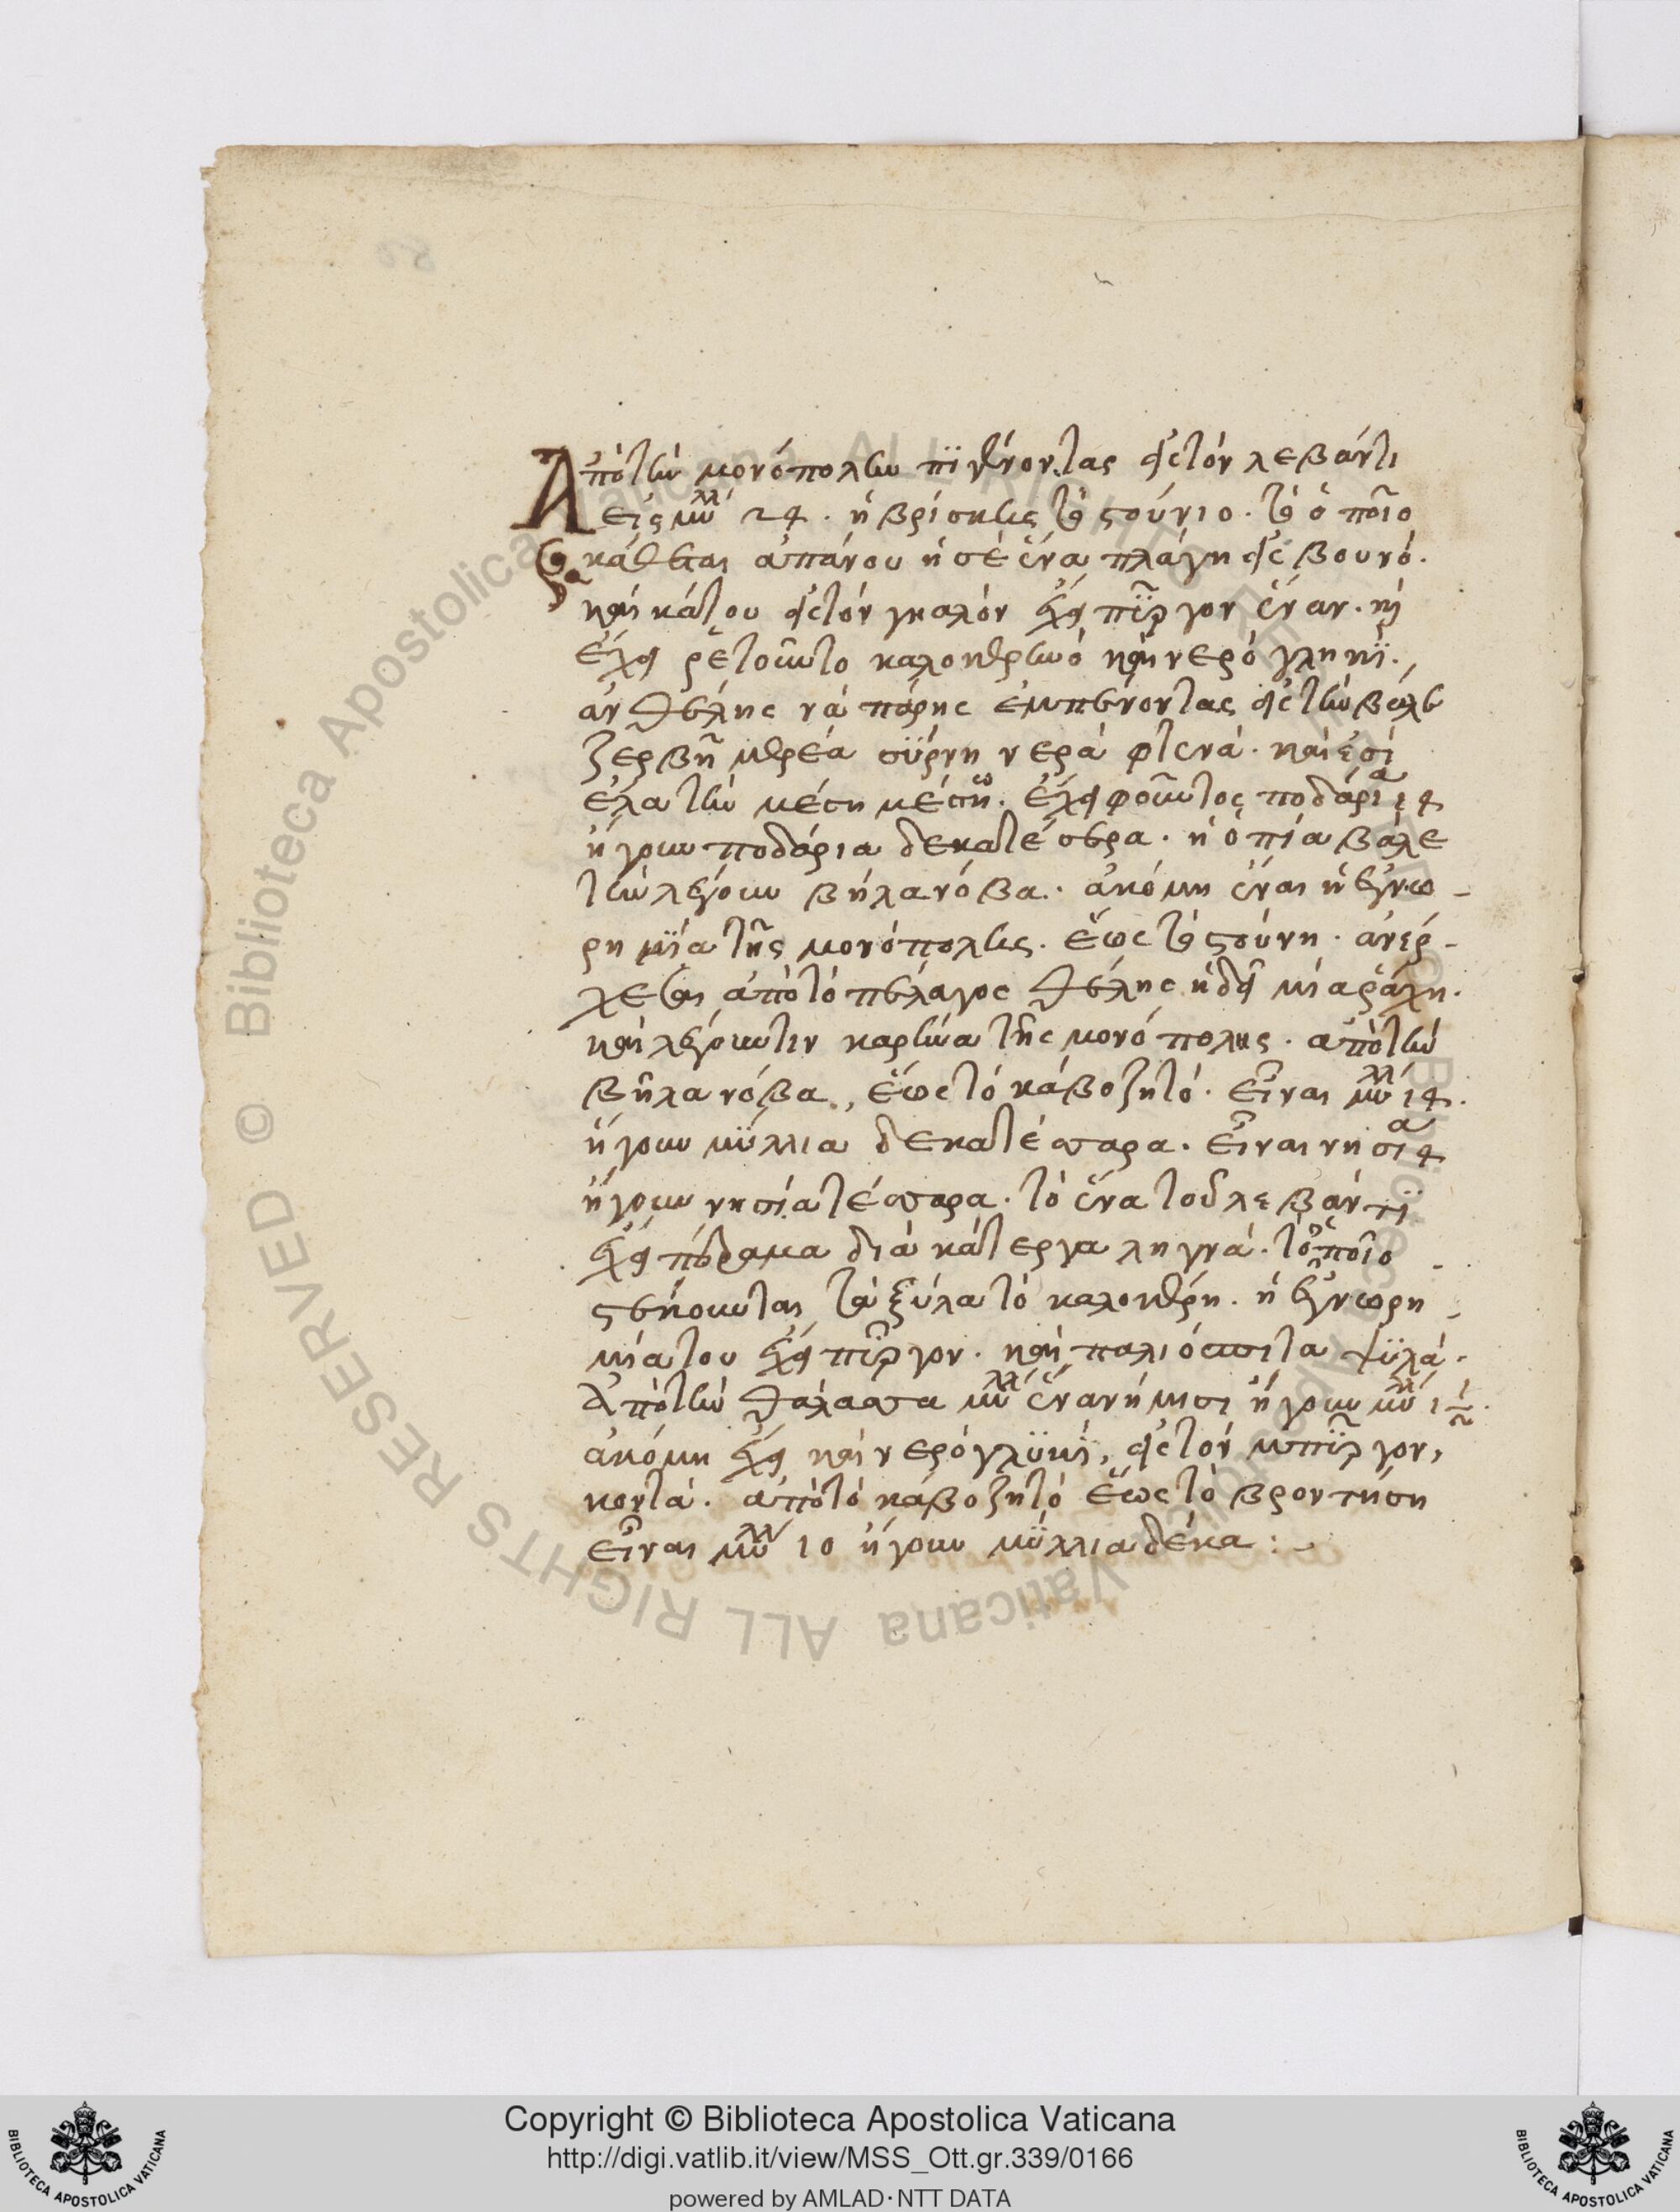 Ἀπὸ τὴν μονόπολην πϊγένοντας εἰς τὸν λεβάντι
εἰς μύλλ 24. ἡβρίσκης τὸ σούνιο. τὸ ὁποῖο
κάθεται ἀπάνου ἡσὲ ἕνα πλάγη εἰς βουνό.
καὶ κάτου εἰς τὸν γκαλόν ἔχει πῦργον ἕναν. κὶ
ἔχει ρέτουντο καλοκερηνό καὶ νερό γληκϊ.
ἀν θέλης νά πάρης ἐμπένοντας εἰς τὴν βάλε
ζερβῆ μερέα σΰρνη νερά φτενά. καὶ ἐσὶ
ἔλα τὴν μέση μέση. ἔχει φοῦντος ποδάρια 14
ἤγουν ποδάρια δεκατέσερα. ἡ ὁπία βάλε
τὴν λέγουν βήλα νόβα. ἀκόμη ἕναι ἡ εγνω-
ρημϊα τῆς μονόπολης. ἕως τὸ σούνη. ἀνέρ-
χεται ἀπὸ τὸ πέλαγος θέλης ἡδεῖ μία ράχη.
καὶ λέγουν τιν καρήνα τῆς μονόπολης. ἀπὸ τὴν
βῆλα νόβα, ἕως τὸ κάβο ζητό. εἶναι μύλλ 14.
ἤγουν μΰλλια δεκατέσσαρα. εἶναι νησία 4
ἤγουν νησία τέσσαρα. τὸ ἕνα τοῦ λεβάντϊ
ἔχει πέραμα διά κάτεργα ληγνά. τὸ ὁποῖο
στένουνται τὰ ξύλα τὸ καλοκέρη. ἡ εγνωρη
μία του ἔχει πῦργον. καὶ παλιόσπιτα ψϋλά.
Ἀπὸ τὴν θάλασσα μύλλ ἕναν ἥμησι ἤγουν μύλλ 1 1/2.
ἀκόμη ἔχει καὶ νερό γλϋκϊ, εἰς τὸν μπΰργον,
κοντά. ἀπὸ τὸ κάβο ζητό ἕως τὸ βροντήση
εἶναι μύλλ 10 ἤγουν μΰλλια δέκα :
Copyright © Biblioteca Apostolica Vaticana
http://digi.vatlib.it/view/MSS_Ott.gr.339/0166
powered by AMLAD·NTT DATA
BIBLIOTECA APOSTOLICA VATICANA
BIBLIOTECA APOSTOLICA VATICANA
© Biblioteca Apostolica Vaticana ALL RIGHTS RESERVED